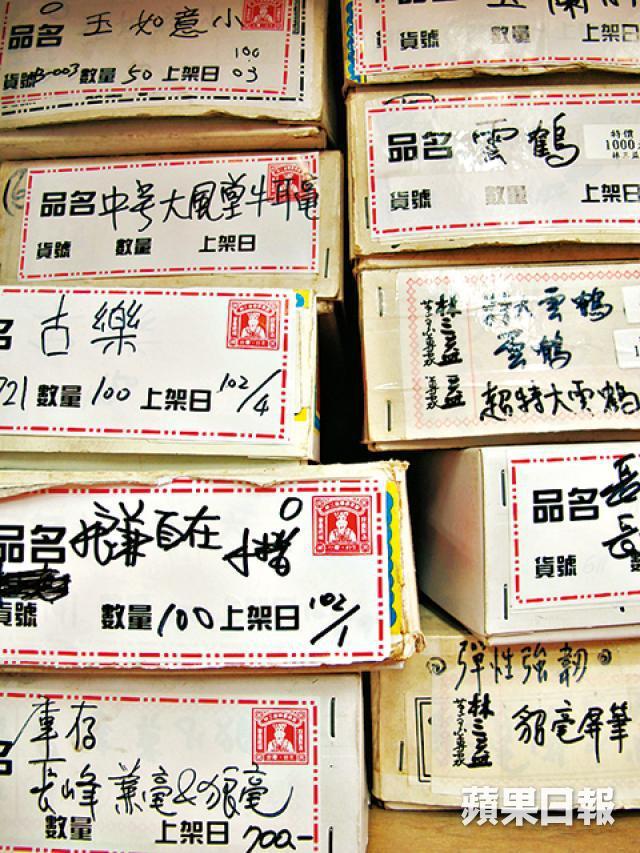 品名 玉如意小
100
貨號B-003 數量 50 上架日 03
品名 中号大風堂牛耳毫
貨號 數量 上架日
名 古樂
721 數量 100 上架日 102/4
品名 謙自在
貨號 數量 100 上架日 102/1
庫存
名 長峰 兼毫&狼毫
數量 上架日 700.-
數量 上架日
品名 雲鶴
特價
1000
貨號 數量 上架日
林三益
特大雲鶴
雲鶴
超特大雲鶴
品名 長
長
貨號 數
彈性強韌
林三益
貂毫屏筆
蘋果日報